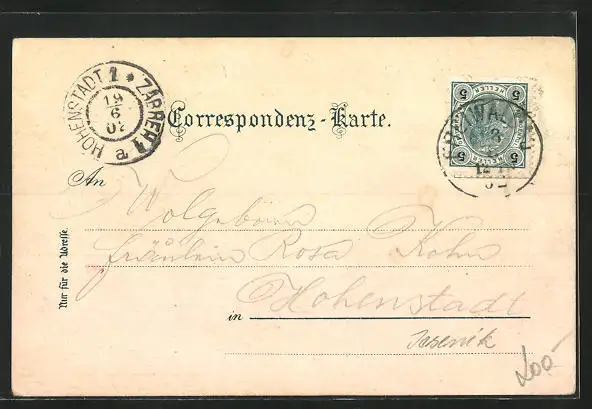 HOHENSTADT 1 * ZÁBŘEH 1 a
19
6
02
Correspondenz-Karte.
5 5
5 5
An
Wolgeboren
Fräulein Rosa Kohn
Hohenstadt
in
Jeseník
Nur für die Adresse.